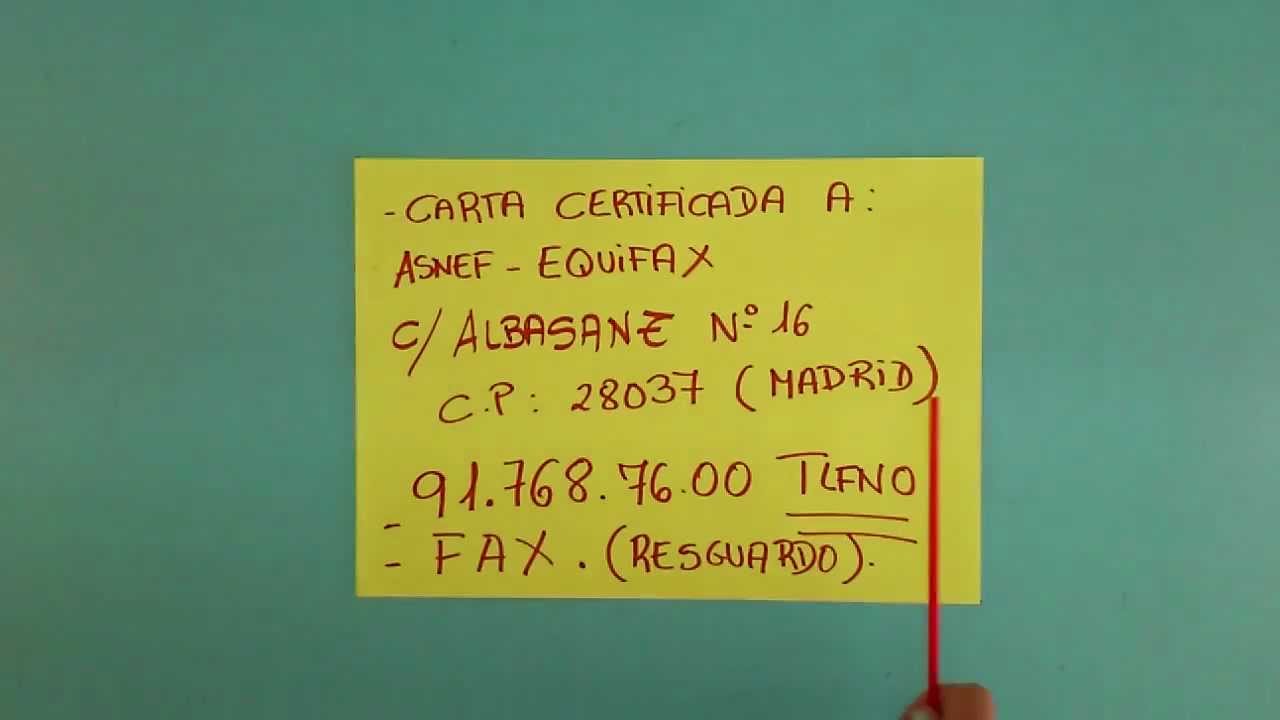 - CARTA CERTIFICADA A:
ASNEF - EQUIFAX
C/ ALBASANZ Nº 16
C.P: 28037 (MADRID)
- 91.768.76.00 TLFNO
- FAX. (RESGUARDO).